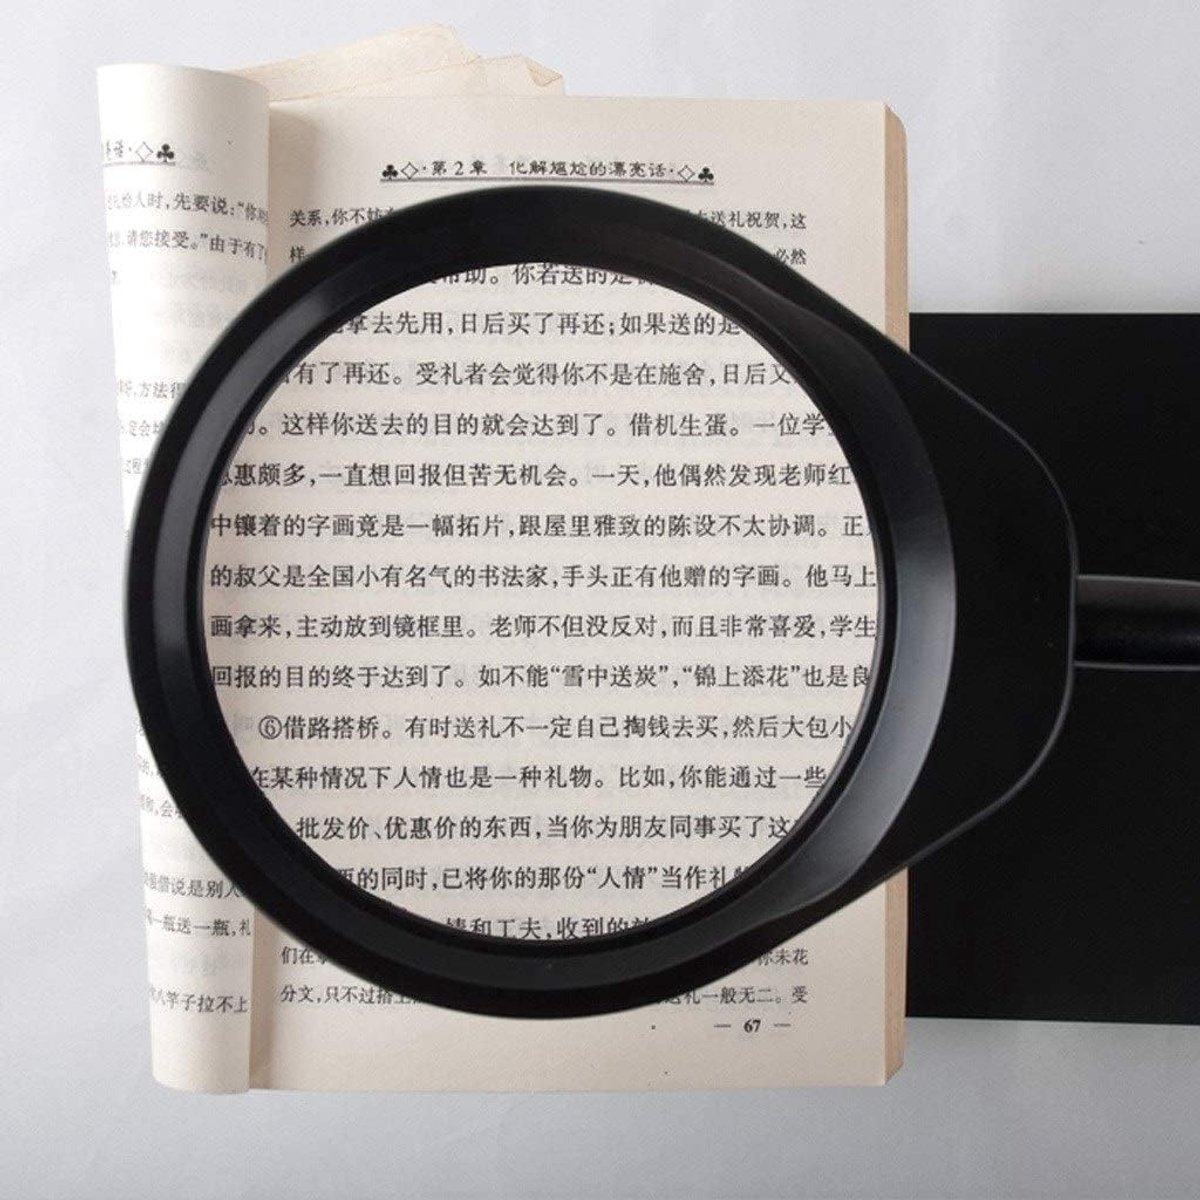 美话·◇♣
♣◇·第2章 化解尴尬的漂亮话·◇♣
礼给人时,先要说:“你
请您接受。”由于有了
听,方法得
定会
借说是别人
一瓶送一瓶,礼
八竿子拉不上
关系,你不妨
送礼祝贺,这
样
必然
帮助。你若送的是
拿去先用,日后买了再还;如果送的是
有了再还。受礼者会觉得你不是在施舍,日后又
。这样你送去的目的就会达到了。借机生蛋。一位学
惠颇多,一直想回报但苦无机会。一天,他偶然发现老师红
中镶着的字画竟是一幅拓片,跟屋里雅致的陈设不太协调。正
的叔父是全国小有名气的书法家,手头正有他赠的字画。他马上
画拿来,主动放到镜框里。老师不但没反对,而且非常喜爱,学生
回报的目的终于达到了。如不能“雪中送炭”,“锦上添花”也是良
⑥借路搭桥。有时送礼不一定自己掏钱去买,然后大包小
在某种情况下人情也是一种礼物。比如,你能通过一些
批发价、优惠价的东西,当你为朋友同事买了这
的同时,已将你的那份“人情”当作礼
情和工夫,收到的
们在
你未花
分文,只不过搭上
送礼一般无二。受
— 67 —